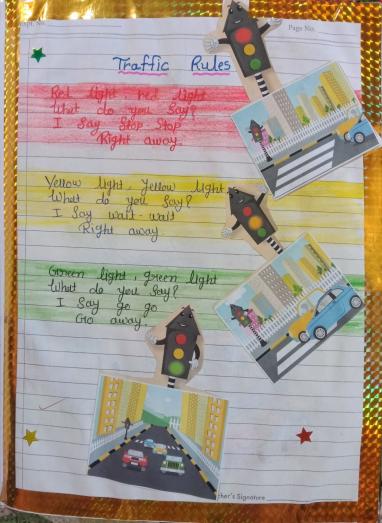 Page No.
Traffic Rules
Red light red light
What do you Say?
I Say Stop Stop
Right away.
Yellow light, Yellow light
What do you Say?
I Say wait-wait
Right away
Green light, green light
What do you Say?
I Say go go
Go away.
her's Signature